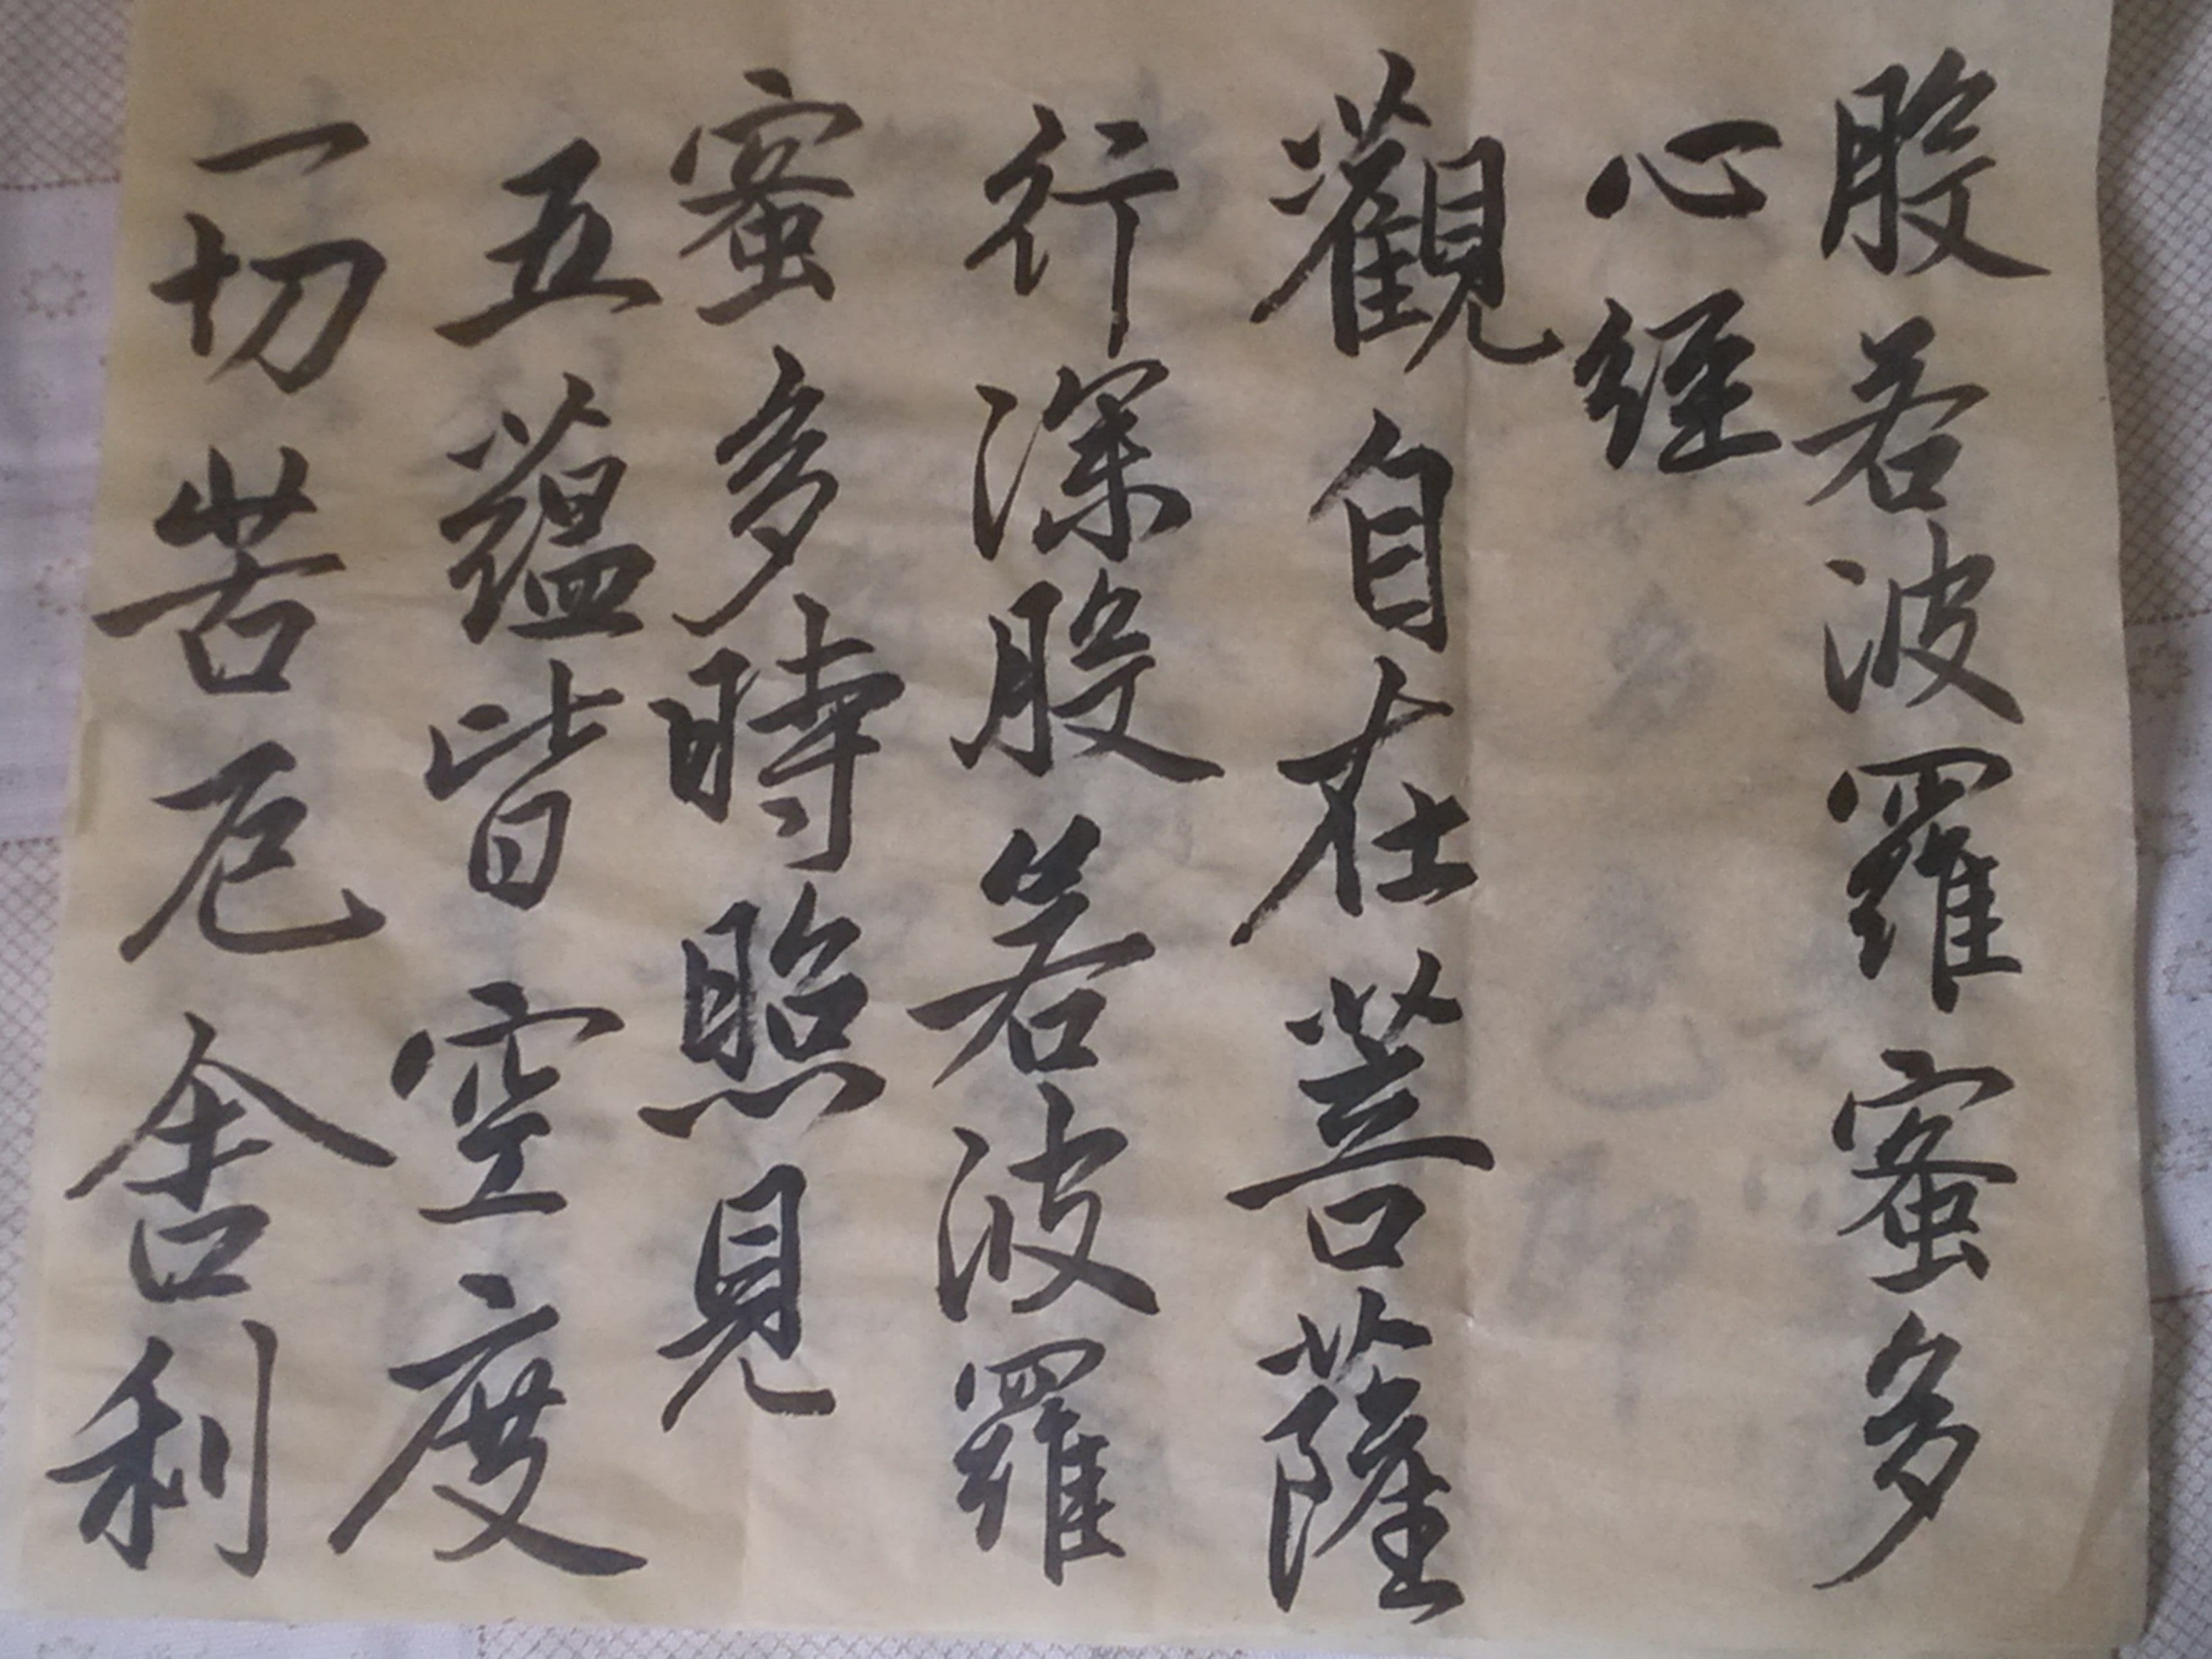 般若波羅蜜多
心經
觀自在菩薩
行深般若波羅
蜜多時照見
五蘊皆空度
一切苦厄舍利